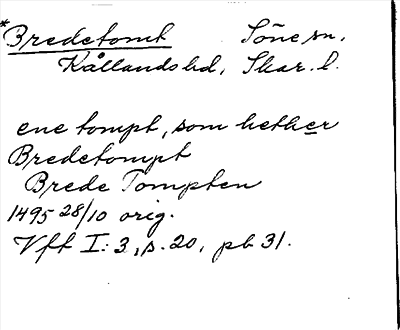 *Bredetomt Söne sn.
Kållands hd, Skar. l.
ene tompt, som hether
Bredetompt
Brede Tompten
1495 28/10 orig.
Vff I: 3, s. 20, pb 31.